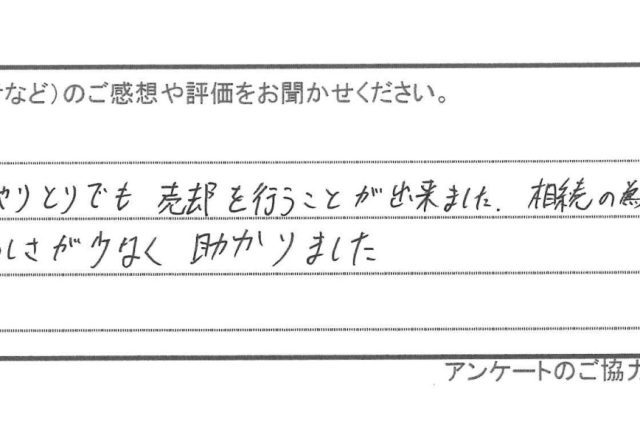 など)のご感想や評価をお聞かせください。
やりとりでも 売却を行うことが出来ました. 相続の為
しさが少なく 助かりました
アンケートのご協力